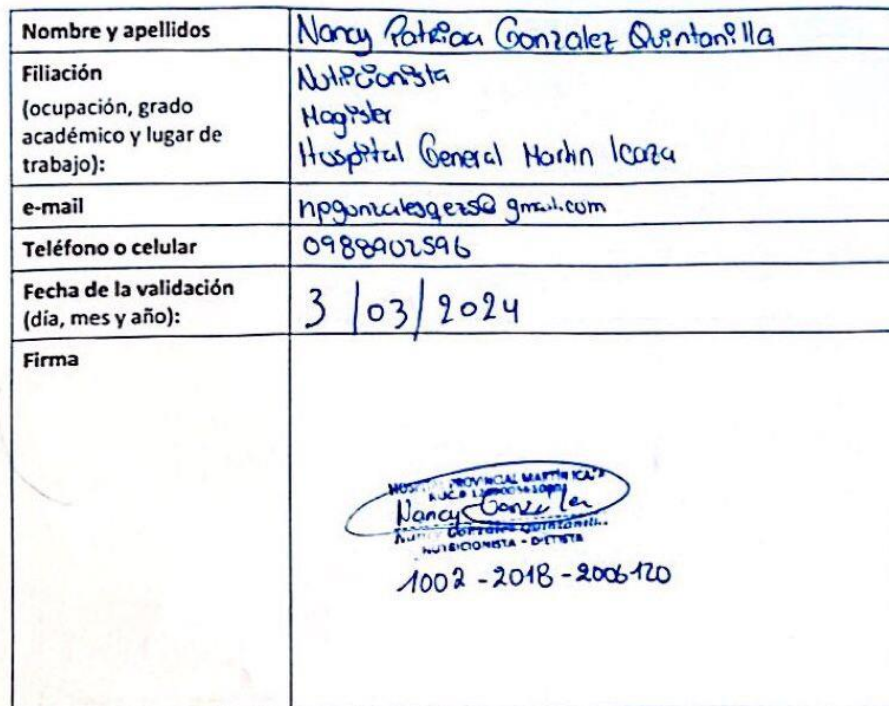 Nombre y apellidos
Nancy Patricia Gonzalez Quintanilla
Filiación
(ocupación, grado
académico y lugar de
trabajo):
Nutricionista
Magister
Hospital General Martin Icaza
e-mail
@gmail.com
Teléfono o celular
0988902596
Fecha de la validación
(día, mes y año):
3/03/2024
Firma
PROVINCIAL MARTIN ICAZA
Nancy Gonzalez
Nancy Gonzales Quintanilla
NUTRICIONISTA - DIETISTA
1002-2018-2006120